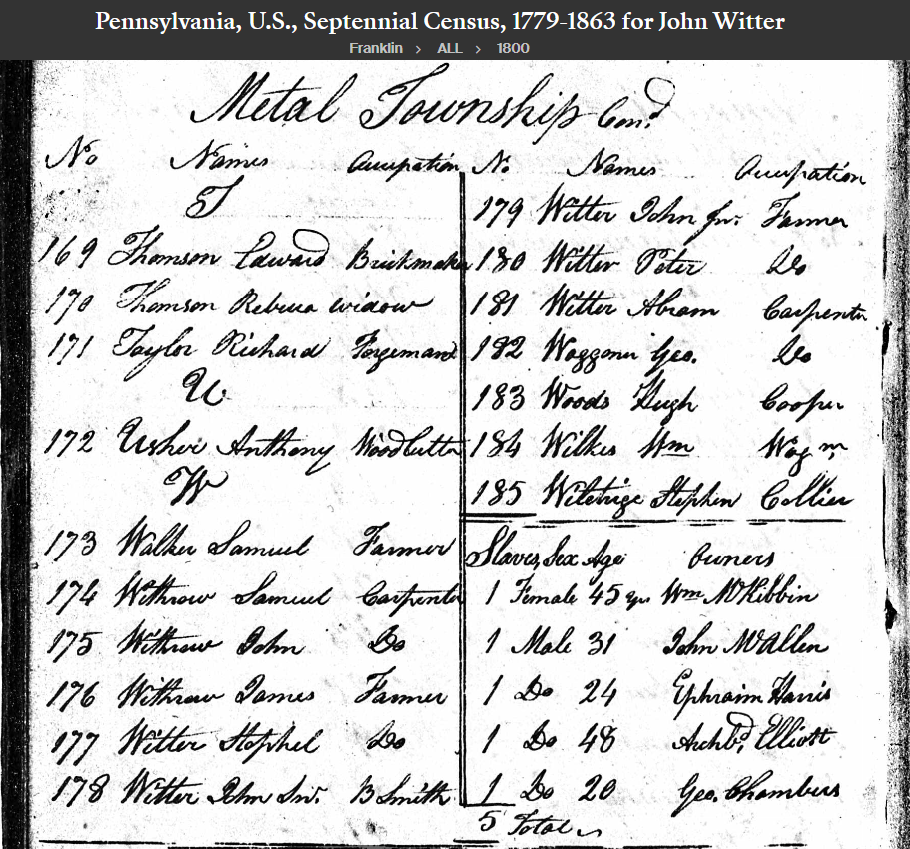 Pennsylvania, U.S., Septennial Census, 1779-1863 for John Witter
Franklin > ALL > 1800
Metal Township Cond.
No Names Occupation
T
169 Thomson Edward Brickmaker
170 Thomson Rebecca widow
171 Taylor Richard Forgemand
U
172 Usher Anthony Woodcutter
W
173 Walker Samuel Farmer
174 Withrow Samuel Carpenter
175 Withrow John Do
176 Withrow James Farmer
177 Witter Stophel Do
178 Witter John Snr. B Smith
No. Names Occupation
179 Witter John Jnr. Farmer
180 Witter Peter Do
181 Witter Abram Carpenter
182 Waggoner Geo. Do
183 Woods Hugh Cooper
184 Wilkes Wm Wag mr
185 Stephen Collier
Slaves, Sex Age Owners
1 Female 45 yrs Wm McKibbin
1 Male 31 John McAllen
1 Do 24 Ephraim Harris
1 Do 48 Archbd. Elliott
1 Do 20 Geo. Chambers
5 Total